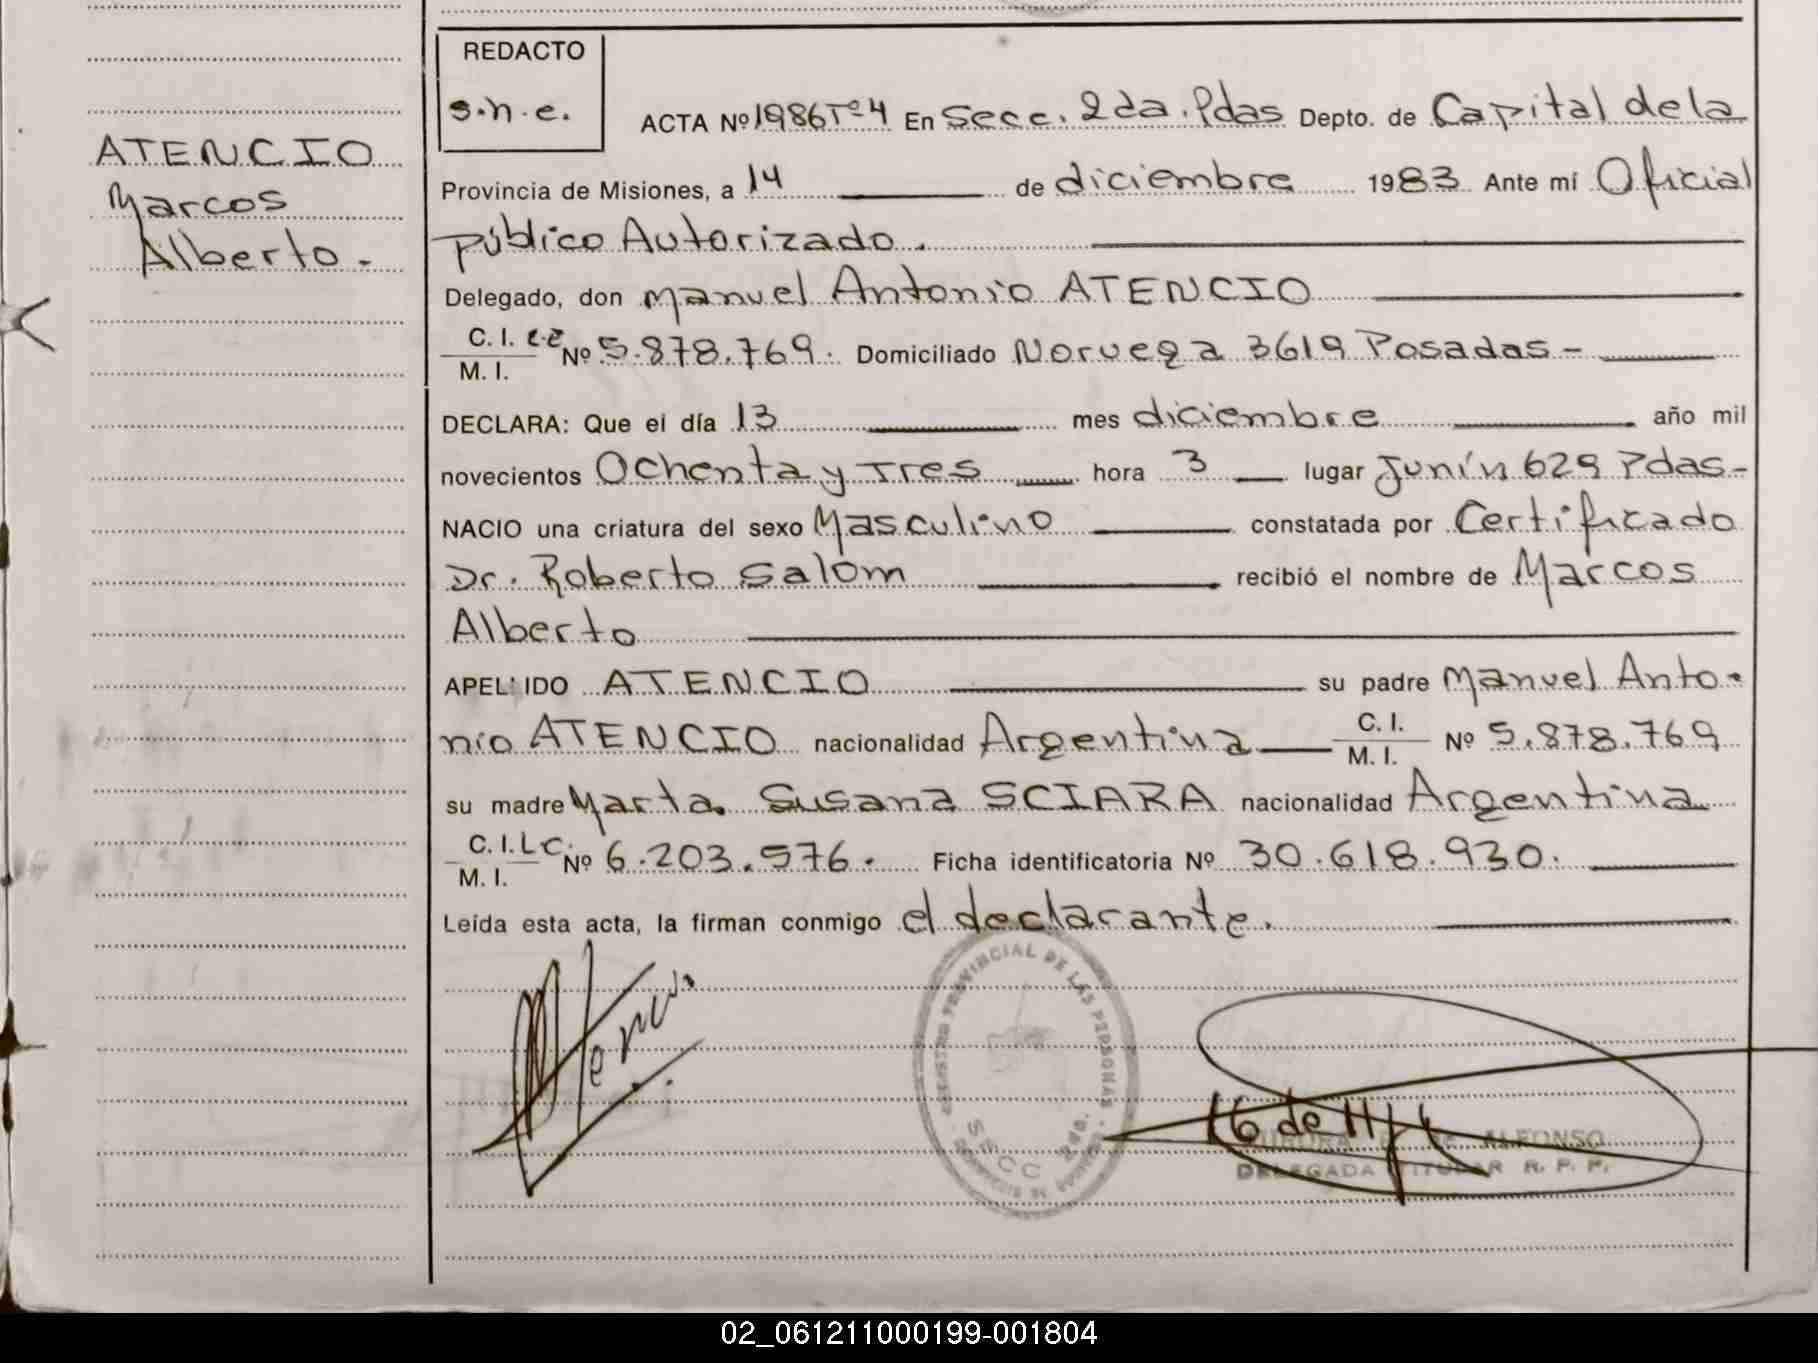 REDACTO
s.h.e.
ACTA Nº 1986 Tº 4 En Secc. 2da. Pdas Depto. de Capital de la
ATENCIO
Marcos
Alberto.-
Provincia de Misiones, a 14 de diciembre 1983 Ante mí Oficial
público Autorizado.
Delegado, don Manuel Antonio ATENCIO
C. I. M. I. Nº 5.878.769. Domiciliado Noruega 3619 Posadas-
DECLARA: Que el día 13 mes diciembre año mil
novecientos Ochenta y Tres hora 3 lugar Junín 629 Pdas-
NACIO una criatura del sexo Masculino constatada por Certificado
Dr. Roberto Salom recibió el nombre de Marcos
Alberto
APELLIDO ATENCIO su padre Manuel Anto-
nio ATENCIO nacionalidad Argentina C. I. M. I. Nº 5.878.769
su madre Marta Susana SCIARA nacionalidad Argentina
C. I. M. I. LC. Nº 6.203.576. Ficha identificatoria Nº 30.618.930.
Leída esta acta, la firman conmigo el declarante.
REGISTRO PROVINCIAL DE LAS PERSONAS
SECC 2da.
DE ALFONSO
DELEGADA TITULAR R. P. P.
02_061211000199-001804